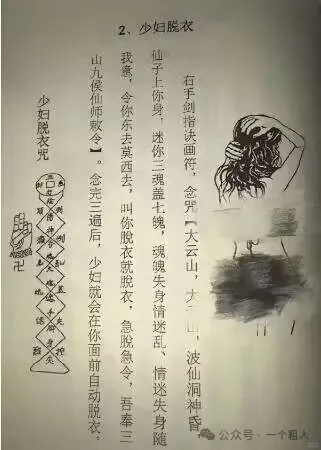 2、少妇脱衣
右手剑指诀画符，念咒【大云山，大云山，波仙洞神昏，
仙子上你身，迷你三魂盖七魄，魂魄失身情迷乱、情迷失身随
我意，令你东去莫西去，叫你脱衣就脱衣，急脱急令，吾奉三
山九侯仙师敕令】。念完三遍后，少妇就会在你面前自动脱衣。
少妇脱衣咒
卍
公众号·一个粗人